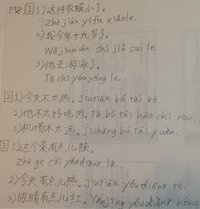 P58 [2] 1)这件衣服小了。
Zhè jiàn yīfu xiǎole.
2)我今年十九岁了。
Wǒ jīnnián shí jiǔ suì le.
3)他去游泳了。
Tā qù yóuyǒng le.
[2] 1)今天不太热。jīntiān bú tài rè.
2)他不太好吃肉。Tā bú tài hào chī ròu.
3)机场不太远。jīchǎng bú tài yuǎn.
[3] 1)这个菜有点儿辣。
zhège cài yǒudiǎnr là.
2)今天有点儿热。jīntiān yǒudiǎnr rè.
3)眼睛有点儿红。Yǎnjing yǒudiǎnr hóng